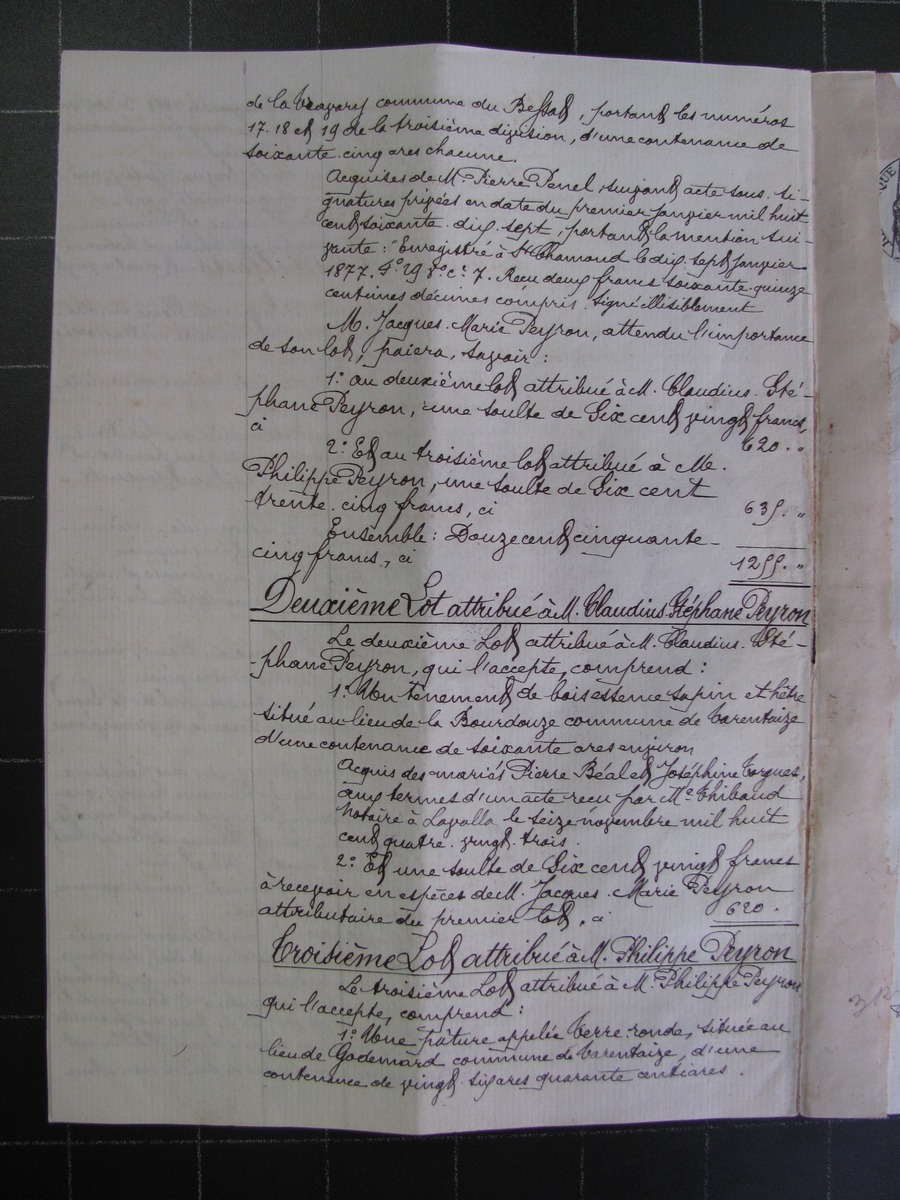 de la commune du Bessat, portant les numéros
17. 18 et 19 de la troisième division, d'une contenance de
soixante-cinq ares chacune.
Acquises de Mr Pierre Penel, suivant acte sous-si-
gnatures privées en date du premier janvier mil huit
cent soixante-dix-sept, portant la mention sui-
vante: "Enregistré à St Chamond le dix-sept janvier
1877. Fo 29 Vo Ce 7. Reçu deux francs soixante-quinze
centimes décimes compris. Signé illisiblement
M. Jacques-Marie Peyron, attendu l'importance
de son lot, paiera, savoir:
1o au deuxième lot attribué à M. Claudius-Sté-
phane Peyron, une soulte de Six cent vingt francs,
ci 620. "
2o Et au troisième lot attribué à Me.
Philippe Peyron, une soulte de Six cent
trente-cinq francs, ci 635. "
Ensemble: Douze cent cinquante-
cinq francs, ci 1255. "
Deuxième Lot attribué à M. Claudius Stéphane Peyron
Le deuxième Lot attribué à M. Claudius-Sté-
phane Peyron, qui l'accepte, comprend:
1o Un tènement de bois essence sapin et hêtre
situé au lieu de la Bourdouze commune de Tarentaize
d'une contenance de soixante ares environ
Acquis des mariés Pierre Béal et Joséphine Torgues,
aux termes d'un acte reçu par Me Thibaud
Notaire à Lavalla le seize novembre mil huit
cent quatre-vingt-trois.
2o Et une soulte de Six cent vingt francs
à recevoir en espèces de M. Jacques-Marie Peyron
attributaire du premier lot, ci 620.
Troisième Lot attribué à M. Philippe Peyron
Le troisième Lot attribué à M. Philippe Peyron
qui l'accepte, comprend:
1o Une pâture appelée Terre-ronde, située au
lieu de Godemard commune de Tarentaize, d'une
contenance de vingt-six ares quarante centiares.